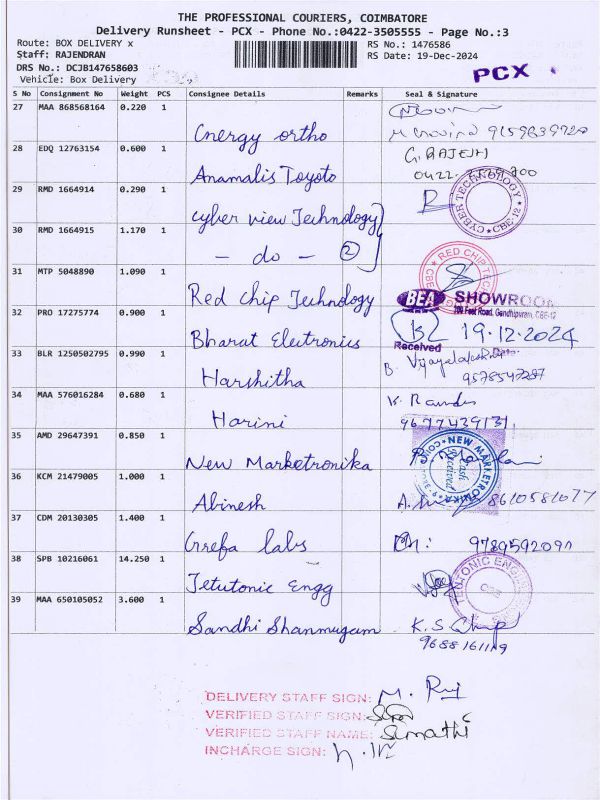 THE PROFESSIONAL COURIERS, COIMBATORE
Delivery Runsheet - PCX - Phone No.:0422-3505555 - Page No.:3
Route: BOX DELIVERY x
RS No.: 1476586
Staff: RAJENDRAN
RS Date: 19-Dec-2024
DRS No.: DCJB147658603
Vehicle: Box Delivery
PCX
S No Consignment No Weight PCS Consignee Details Remarks Seal & Signature
27 MAA 868568164 0.220 1
Cnergy ortho
28 EDQ 12763154 0.600 1
G. RAJESH
Anamalis Toyoto
29 RMD 1664914 0.290 1
CYBER TECHNOLOGY CBE-12
Cyber view Technology
30 RMD 1664915 1.170 1
- do - 2
31 MTP 5048890 1.090 1
RED CHIP
Red Chip Technology
BEA SHOWROOM
100 Feet Road, Gandhipuram, CBE-12
32 PRO 17275774 0.900 1
Bharat Electronics
19.12.2024
Received Date:
33 BLR 1250502795 0.990 1
B. Vijayalakshmi
Harshitha
34 MAA 576016284 0.680 1
Harini
35 AMD 29647391 0.850 1
NEW MARKETRONIKA
New Marketronika
36 KCM 21479005 1.000 1
Abinesh
8610581077
37 CDM 20130305 1.400 1
Grefa labs
9789592091
38 SPB 10216061 14.250 1
Tetutonic Engg
39 MAA 650105052 3.600 1
Sandhi Shanmugam
K.S
DELIVERY STAFF SIGN:
VERIFIED STAFF SIGN:
VERIFIED STAFF NAME: Sumathi
INCHARGE SIGN: